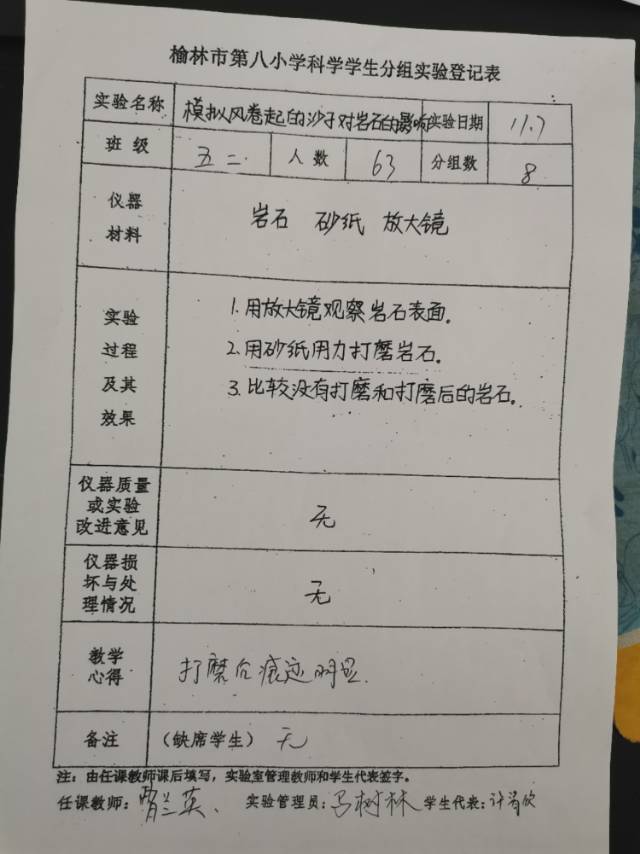 榆林市第八小学科学学生分组实验登记表
实验名称 模拟风卷起的沙子对岩石的影响 实验日期 11.7
班 级 五二 人 数 63 分组数 8
仪器
材料
岩石 砂纸 放大镜
实验
过程
及其
效果
1.用放大镜观察岩石表面。
2.用砂纸用力打磨岩石。
3.比较没有打磨和打磨后的岩石。
仪器质量
或实验
改进意见
无
仪器损
坏与处
理情况
无
教学
心得
打磨后痕迹明显.
备注 (缺席学生) 无
注：由任课教师课后填写，实验室管理教师和学生代表签字。
任课教师：兰英 实验管理员：马树林 学生代表：许